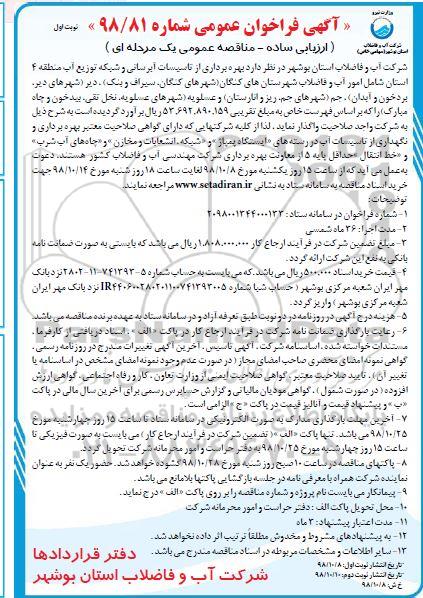 وزارت نیرو
شرکت آب و فاضلاب
استان بوشهر (سهامی خاص)
« آگهی فراخوان عمومی شماره ۹۸/۸۱ »
نوبت اول
( ارزیابی ساده - مناقصه عمومی یک مرحله ای )
شرکت آب و فاضلاب استان بوشهر در نظر دارد بهره برداری از تاسیسات آبرسانی و شبکه توزیع آب منطقه ۴
استان شامل امور آب و فاضلاب شهرستان های کنگان (شهرهای کنگان، سیراف و بنک) ، دیر (شهرهای دیر،
بردخون و آبدان) ، جم (شهرهای جم، ریز و انارستان) و عسلویه (شهرهای عسلویه، نخل تقی، بیدخون و چاه
مبارک) را که بر اساس فهرست بهای خاص به مبلغ تقریبی ۵۳,۶۹۲,۸۹۰,۱۵۹ ریال برآورد گردیده است به شرح ذیل
به شرکت واجد صلاحیت واگذار نماید . لذا از کلیه شرکتهایی که دارای گواهی صلاحیت معتبر بهره برداری و
نگهداری از تاسیسات آب در رسته های «ایستگاه پمپاژ» و «شبکه، انشعابات و مخازن» و «چاه های آب شرب»
و «خط انتقال» حداقل پایه ۵ از معاونت بهره برداری شرکت مهندسی آب و فاضلاب کشور هستند، دعوت
به عمل می آید که از ساعت ۱۵ روز یکشنبه مورخ ۹۸/۱۰/۸ لغایت ساعت ۱۸ روز شنبه مورخ ۹۸/۱۰/۱۴ جهت
خرید اسناد مناقصه به سامانه ستاد به نشانی www.setadiran.ir مراجعه نمایند.
توضیحات:
۱- شماره فراخوان در سامانه ستاد: ۲۰۹۸۰۰۱۳۴۴۰۰۰۱۳۳
۲- مدت اجرا: ۳۶ ماه شمسی
۳- مبلغ تضمین شرکت در فرآیند ارجاع کار ۱,۸۰۸,۰۰۰,۰۰۰ ریال می باشد که بایستی به صورت ضمانت نامه
بانکی به نفع این شرکت ارائه گردد.
۴- قیمت خرید اسناد ۵۰۰,۰۰۰ ریال می باشد، که می بایست به حساب شماره ۵-۷۴۱۳۹۲-۱۱-۲۸۰۲ نزد بانک
مهر ایران شعبه مرکزی بوشهر (حساب شبا شماره IR۴۴۰۶۰۰۲۸۰۲۰۱۱۰۰۷۴۱۳۹۲۰۰۵ نزد بانک مهر ایران
شعبه مرکزی بوشهر) واریز گردد.
۵- هزینه درج آگهی در روزنامه در دو نوبت طبق تعرفه آزاد و در سامانه ستاد به عهده برنده مناقصه می باشد.
۶- رعایت بارگذاری ضمانت نامه شرکت در فرآیند ارجاع کار در پاکت «الف»، اسناد دریافتی از کارفرما،
مستندات خواسته شده، اساسنامه شرکت، آگهی تاسیس، آخرین آگهی تغییرات مندرج در روزنامه رسمی،
گواهی نمونه امضای محضری صاحب امضای مجاز (در صورت عدم وجود نمونه امضای مشخص در اساسنامه یا
تغییر آن) ، تایید صلاحیت معتبر، گواهی صلاحیت ایمنی از وزارت تعاون، کار و رفاه اجتماعی، گواهی ارزش
افزوده (در صورت شمول) ، گواهی مودیان مالیاتی و گزارش حسابرس رسمی برای آخرین سال مالی در پاکت
«ب» و پیشنهاد قیمت و آنالیز قیمت در پاکت «ج» الزامی است.
۷- آخرین مهلت بارگذاری مدارک به صورت الکترونیکی در سامانه ستاد تا ساعت ۱۵ روز چهارشنبه مورخ
۹۸/۱۰/۲۵ می باشد. تنها پاکت «الف» (تضمین شرکت در فرآیند ارجاع کار) می بایست به صورت فیزیکی تا
ساعت ۱۵ روز چهارشنبه مورخ ۹۸/۱۰/۲۵ به دفتر حراست و امور محرمانه شرکت تحویل گردد.
۸- پاکتهای مناقصه در ساعت ۱۰ صبح روز شنبه مورخ ۹۸/۱۰/۲۸ گشوده خواهد شد. حضور یک نفر به عنوان
نماینده شرکت همراه با معرفی نامه در جلسه بازگشایی پاکتها بلامانع می باشد.
۹- پیمانکار می بایست نام پروژه و شماره مناقصه را بر روی پاکت «الف» درج نماید.
۱۰- محل تحویل پاکت الف: دفتر حراست و امور محرمانه شرکت
۱۱- مدت اعتبار پیشنهاد: ۳ ماه
۱۲- به پیشنهادهای مشروط و مخدوش مطلقاً ترتیب اثر داده نخواهد شد.
۱۳- سایر اطلاعات و مشخصات مربوطه در اسناد مناقصه مندرج می باشد.
تاریخ انتشار نوبت اول: ۹۸/۱۰/۸
تاریخ انتشار نوبت دوم: ۹۸/۱۰/۱۰
خ ش: ۹۸/۱۰/۸
دفتر قراردادها
شرکت آب و فاضلاب استان بوشهر